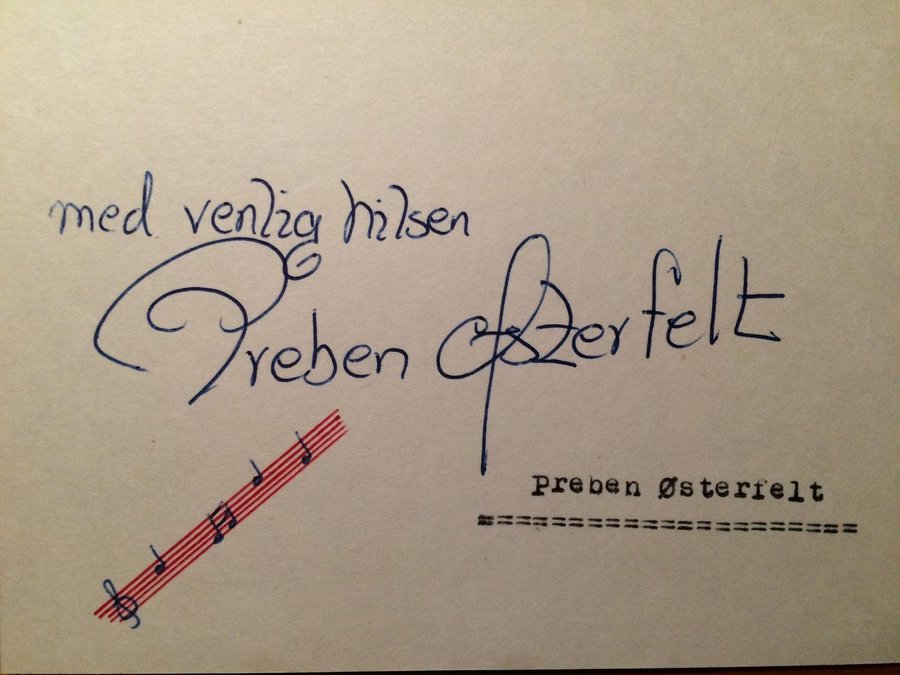 med venlig hilsen
Preben Østerfelt
Preben Østerfelt
======================